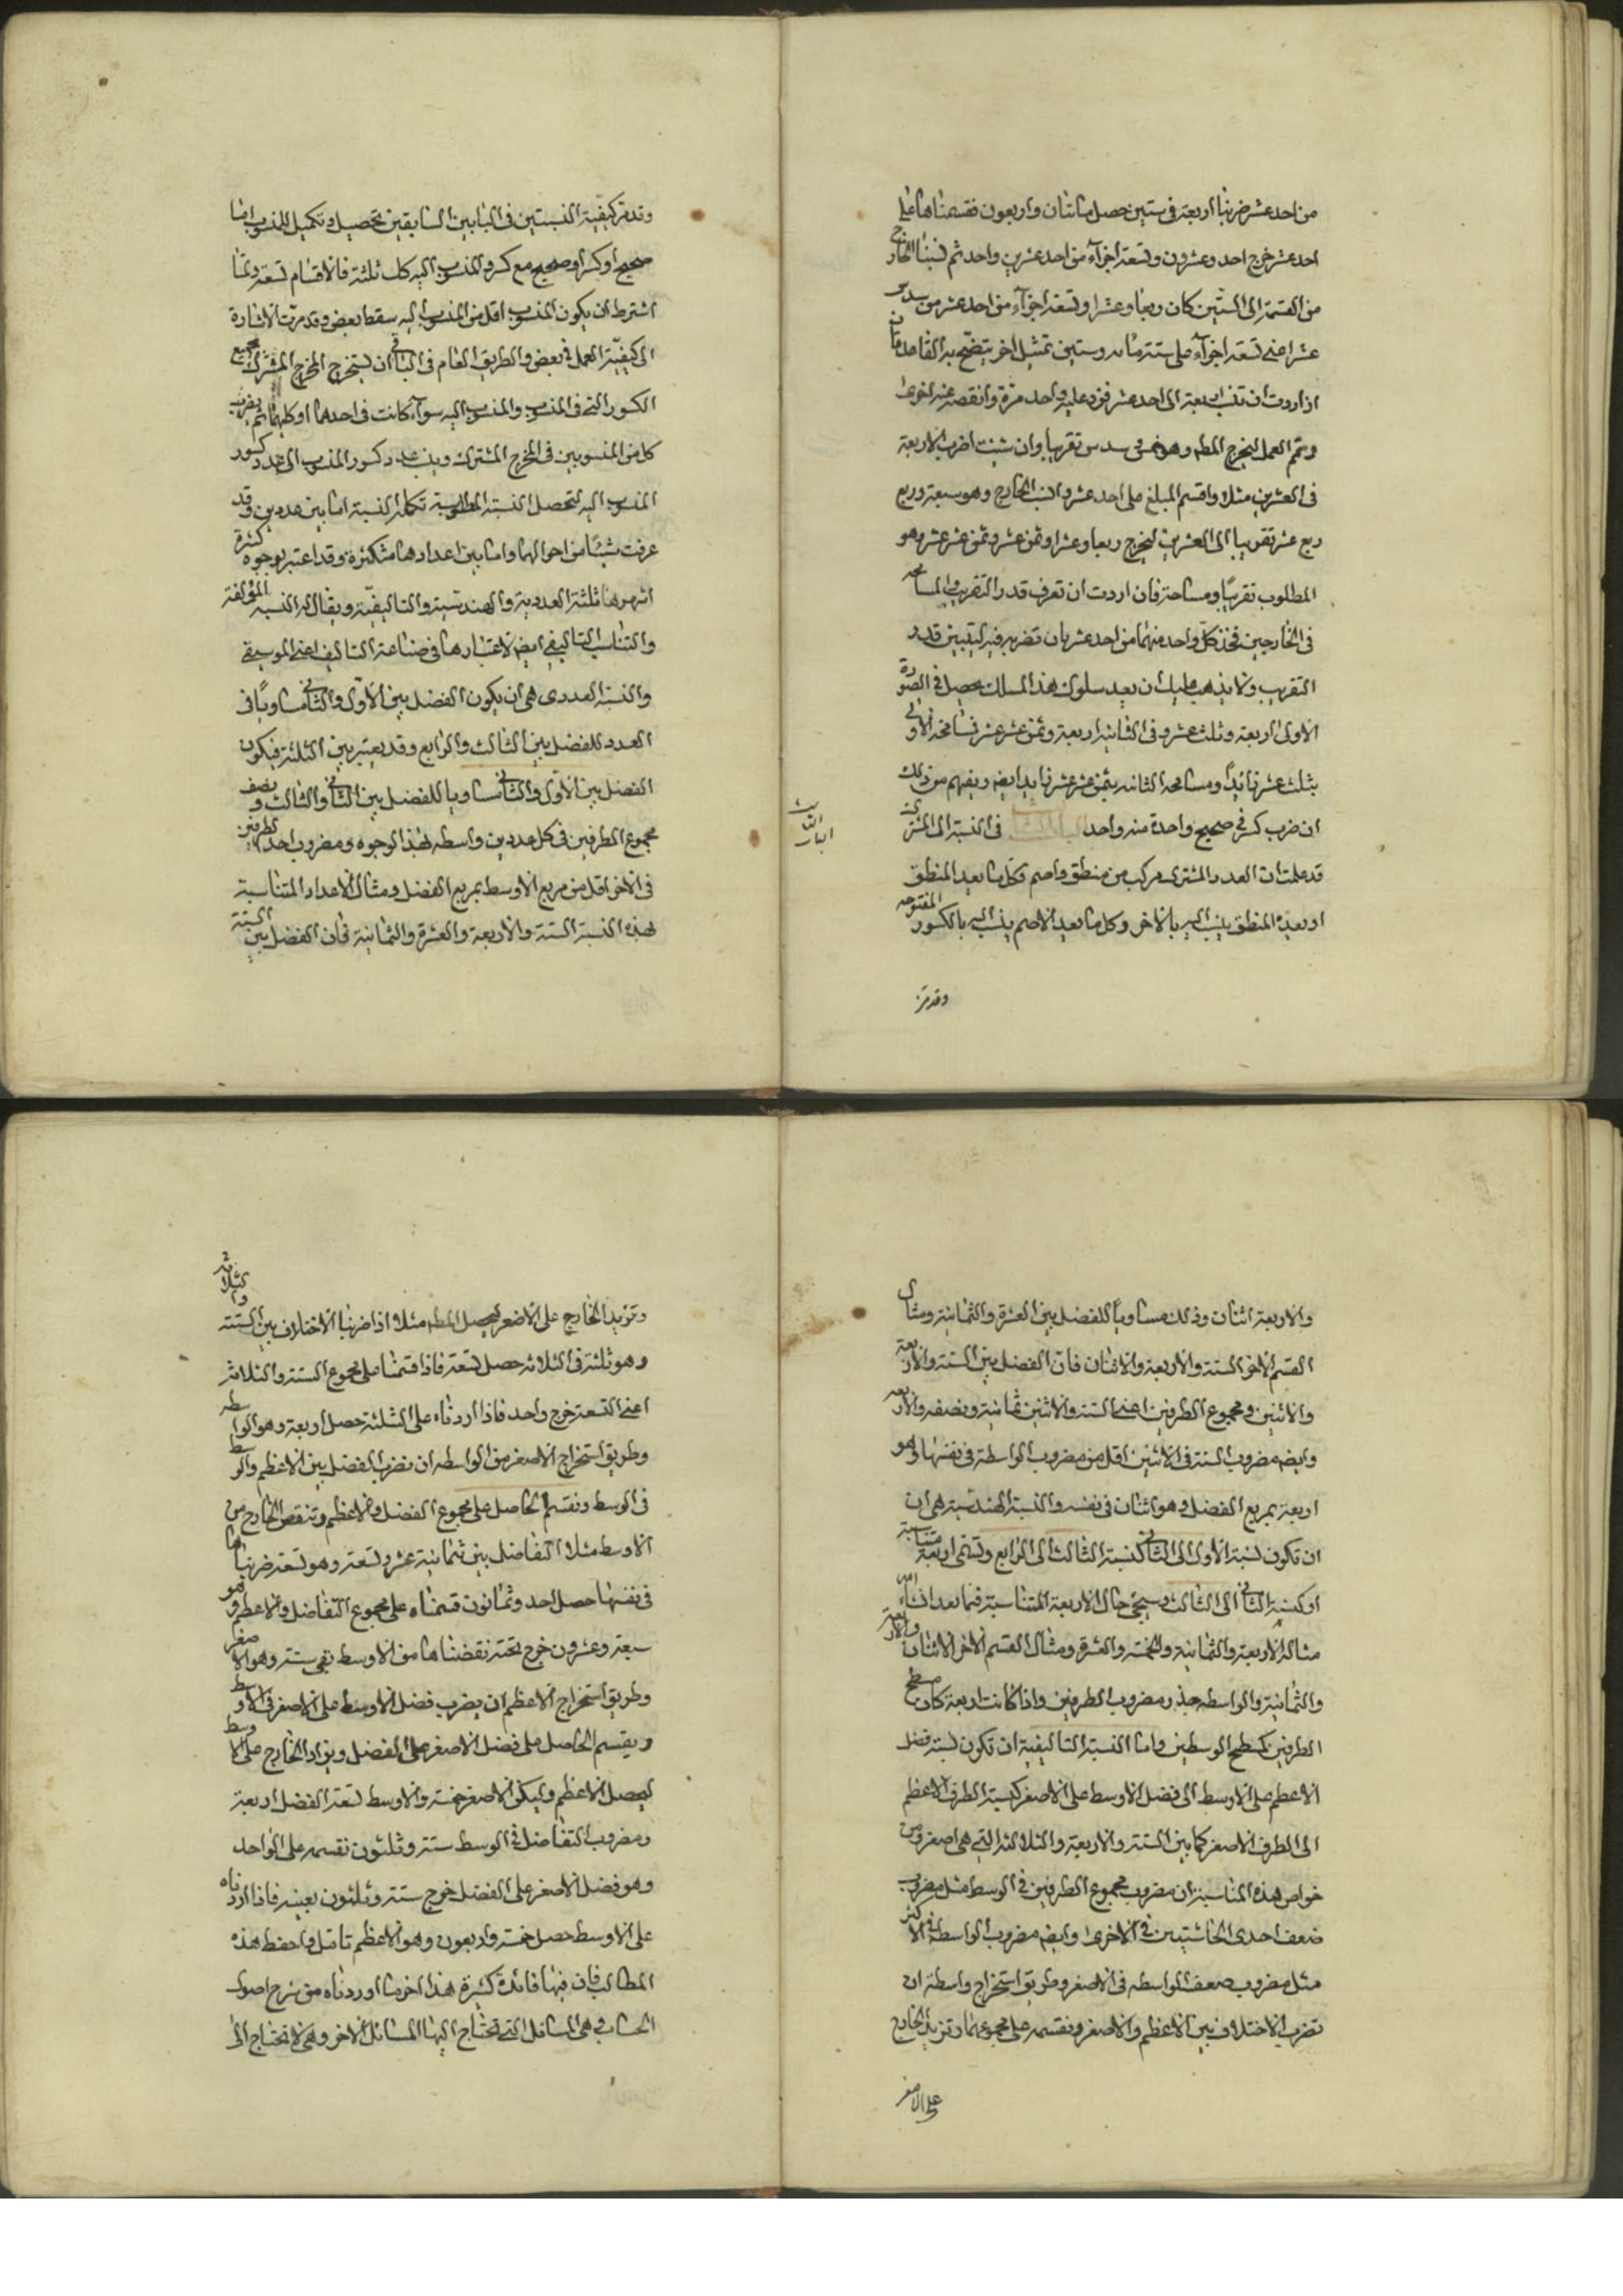 من احد عشر ضربنا اربعة فى ستين حصل مائتان واربعون فقسمناها على
احد عشر خرج احد وعشرون وتسعة اجزآء من احد عشر من واحد ثم نسبنا الخارج
من القسمة الى الستين كان ربعا وعشرا وتسعة اجزآء من احد عشر من سدس
عشر اعنى تسعة اجزآء على ستة مائة وستين تمثيل اخر يتضح به القاعدة فان
اذا اردت ان تنسب اربعة الى احد عشر فزد عليه واحد مرة وانقصه عنه اخرى
وتمم العمل ليخرج المطـ وهو خمس سدس تقريبا وان شئت اضرب الاربعة
فى العشرين مثلا واقسم المبلغ على احد عشر وانسب الخارج وهو سبعة وربع
ربع عشر تقريبا الى العشرين ليخرج ربعا وعشرا وثمن عشر وثمن عشر عشر وهو
المطلوب تقريبًا ومساحة فان اردت ان تعرف قدر التقريب والمسامحه
فى الخارجين فخذ كلّ واحد منهما من احد عشر بان تضربه فيه ليتبين قدر
التقريب ولا يذهب عليك ان بعد سلوك هذا المسلك يحصل فى الصورة
الاولى اربعة وثلث عشر وفى الثانية اربعة وثمن عشر عشر فسامحه الاولى
بثلث عشر زايدًا ومسامحه الثانيه بثمن عشر عشر زايدا ايضه ويفهم من ذلك
ان ضرب كسر فى صحيح واحدة منه واحد الباب الثالث فى النسبة الى المشترك
الباب الثالث
قد علمت ان العدد المشترك مركب من منطق واصم وكل ما يعد المنطق
او يعده المنطق ينسب اليه بالاخر وكل ما يعد الاصم ينسب اليه بالكسور المفتوحه
وقد مرّ
وقد مرّ كيفية النسبتين فى البابين السابقين تحصيل وتكميل المنسوب اما
صحيح او كسر او صحيح مع كسر والمنسوب اليه كك ثلثة فالاقسام تسعة ولما
اشترط ان يكون المنسوب اقل من المنسوب اليه سقط بعض وقد مرّت الاشارة
الى كيفيّة العمل فى بعض والطريق العام فى الباقى ان تستخرج المخرج المشترك لجميع
الكسور التى فى المنسوب والمنسوب اليه سوآء كانت فى احدهما او كليهما ثم يضرب
كل من المنسوبين فى المخرج المشترك وينسب عدد كسور المنسوب الى عدد كسور
المنسوب اليه لتحصل النسبة المطلوبة تكملة النسبة اما بين عددين وقد
عرفت شيئًا من احوالهما واما بين اعداد هامتكثرة وقد اعتبر بوجوه كثيرة
اشهرها ثلثة العددية والهندسية والتاليفيّة ويقال له النسبه المؤلفة
والتناسب التاليفى ايضه لاعتبارها فى صناعة التاليف اعنى الموسيقى
والنسبة العددى هى ان يكون الفضل بين الاوّل والثانى مساويًا فى
العدد للفضل بين الثالث والرابع وقد يعتبر بين الثلثة فيكون
الفضل بين الاوّل والثانى مساويا للفضل بين الثانى والثالث ونصف
مجموع الطرفين فى كل عددين واسطه لهذا الوجوه ومضروب احد الطرفين
فى الاخر اقل من مربع الاوسط بمربع الفضل ومثال الاعداد المتناسبة
لهذه النسبة الستة والاربعة والعشرة والثمانية فان الفضل بين الستة
والاربعة اثنان وذلك مساويًا للفضل بين العشرة والثمانية ومثال
القسم الاخر الستة والاربعة والاثنان فان الفضل بين الستة والاربعة
والاثنين ومجموع الطرفين اعنى الستة والاثنين ثمانية ونصفه والاربعه
وايضه مضروب الستة فى الاثنين اقل من مضروب الواسطة فى نفسها وهو
اربعة بمربع الفضل وهو اثنان فى نفسه والنسبة الهندسية هى ان
ان تكون نسبة الاول الى الثانى كنسبة الثالث الى الرابع وتسمى اربعة متناسبة
او كنسبة الثانى الى الثالث وسيجئ حال الاربعة المتناسبة فيما بعد انشاء الله
مثاله الاربعة والثمانية والخمسة والعشرة ومثال القسم الاخر الاثنان والاربعة
والثمانية والواسطه جذر مضروب الطرفين واذا كانت اربعة كان مسطح
الطرفين كمسطح الوسطين واما النسبة التاليفية ان تكون نسبة فضل
الاعظم على الاوسط الى فضل الاوسط على الاصغر كنسبة الطرف الاعظم
الى الطرف الاصغر كما بين الستة والاربعة والثلاثة التى هى اصغر ومن
خواص هذه المناسبة ان مضروب مجموع الطرفين فى الوسط مثل مضروب
ضعف احدى الحاشيتين فى الاخرى وايضه مضروب الواسطة فى الاكثر
مثل مضروب ضعف الواسطه فى الاصغر وطريق استخراج واسطة ان
تضرب الاختلاف بين الاعظم والاصغر ونقسمه على مجموعهما وتزيد الخارج
على الاصغر
وتزيد الخارج على الاصغر ليحصل المطـ مثلا اذا ضربنا الاختلاف بين الستة والثلاثة
وهو ثلثة فى الثلاثه حصل تسعة فاذا قسمنا على مجموع الستة والثلاثة
اعنى التسعة خرج واحد فاذا اردناه على الثلثة حصل اربعة وهو الواسطه
وطريق استخراج الاصغر من الواسطه ان نضرب الفضل بين الاعظم والوسط
فى الوسط ونقسم الحاصل على مجموع الفضل والاعظم وتنقص الخارج من
الاوسط مثلا التفاضل بين ثمانية عشر وتسعة وهو تسعة ضربناها
فى نفسها حصل احد وثمانون قسمناه على مجموع التفاضل والاعظم وهو
سبعة وعشرون خرج ثلثة نقصناها من الاوسط بقى ستة وهو الاصغر
وطريق استخراج الاعظم ان يضرب فضل الاوسط على الاصغر فى الاوسط
ويقسم الحاصل على فضل الاصغر على الفضل ويزاد الخارج على الاوسط
ليحصل الاعظم وليكن الاصغر خمسة والاوسط تسعة الفضل اربعة
ومضروب التفاضل فى الوسط ستة وثلثون نقسمه على الواحد
وهو فضل الاصغر على الفضل خرج ستة وثلثون بعينه فاذا اردناه
على الاوسط حصل خمسة واربعون وهو الاعظم تامّل واحفظ هذه
المطالب فان فيها فائدة كثيرة هذا اخر ما اوردناه من شرح اصول
الحساب وهى المسائل التى تحتاج اليها المسائل الاخر وهى لا تحتاج الى